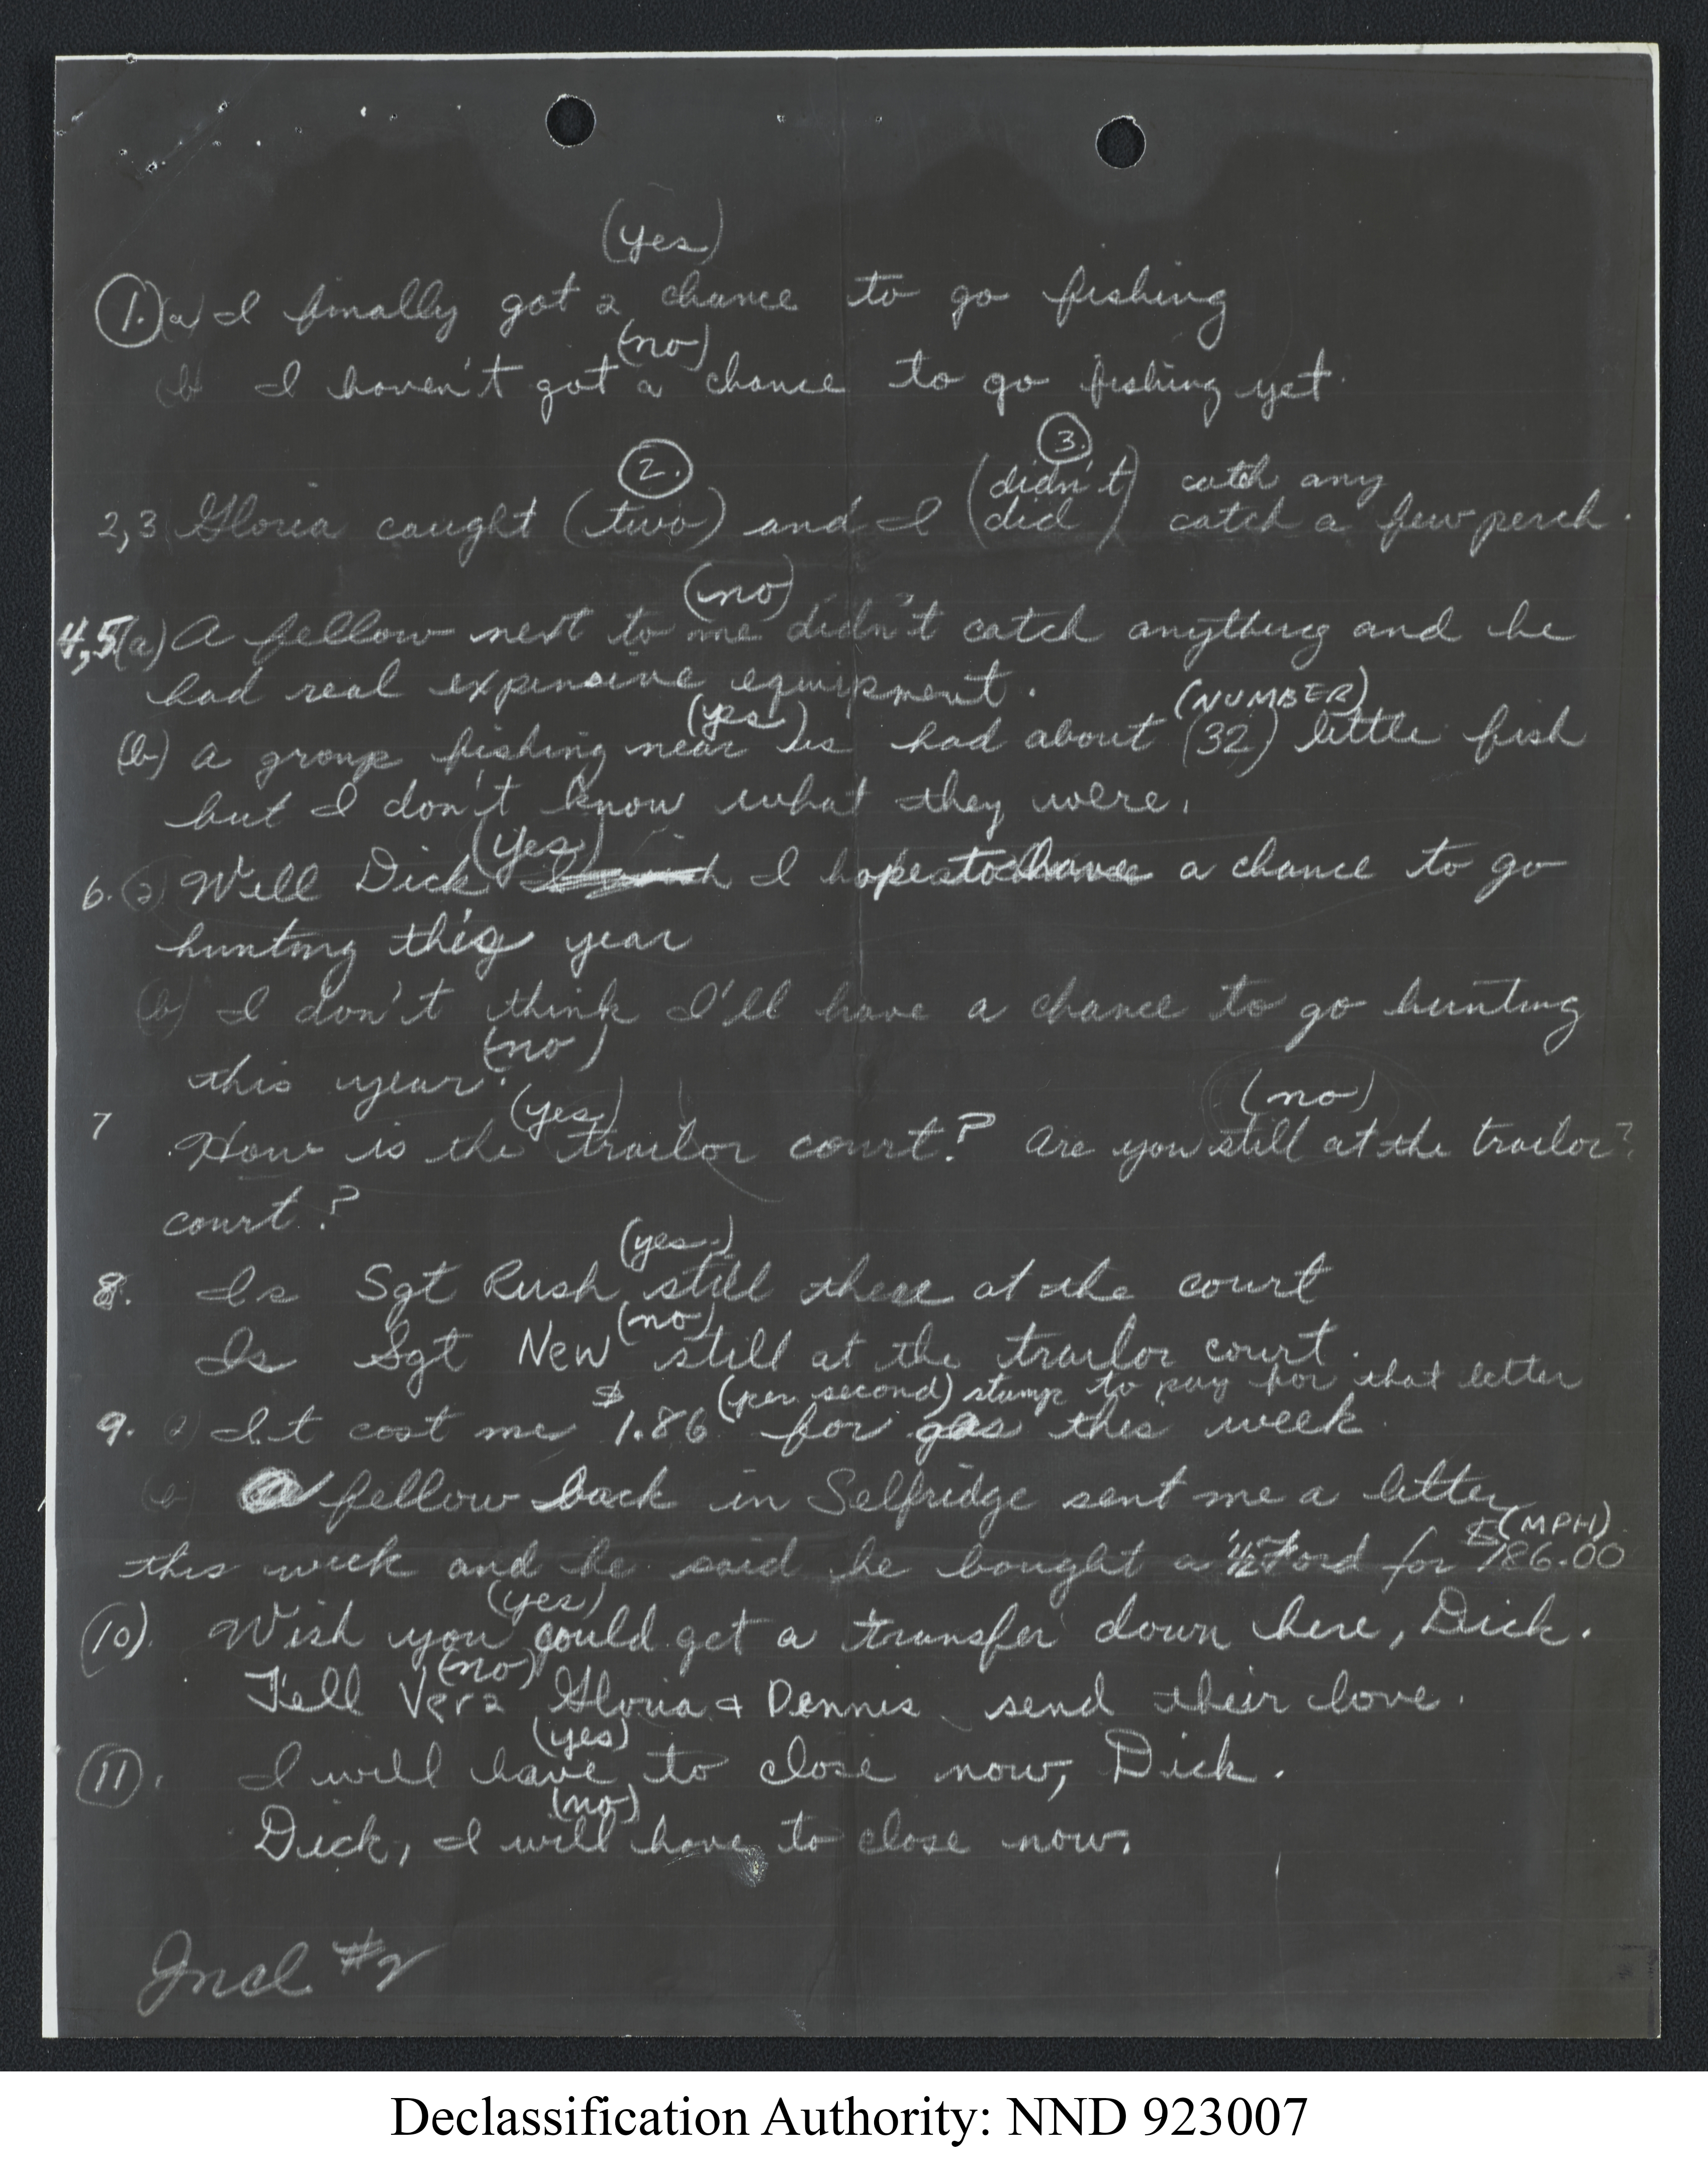 (yes)
1. (a) I finally got a chance to go fishing
(no)
(b) I haven't got a chance to go fishing yet.
2. 3.
(didn't) catch any
2,3 Gloria caught (two) and I (did) catch a few perch.
(no)
4,5 (a) A fellow next to me didn't catch anything and he
had real expensive equipment.
(yes) (NUMBER)
(b) A group fishing near us had about (32) little fish
but I don't know what they were.
(yes)
6. (a) Well Dick I hope to have a chance to go
hunting this year
(b) I don't think I'll have a chance to go hunting
(no)
this year.
(yes) (no)
7 How is the trailor court? Are you still at the trailor?
court?
(yes)
8. Is Sgt Rush still there at the court
(no)
Is Sgt New still at the trailor court.
(per second) stamp to pay for that letter
9. (a) It cost me $1.86 for gas this week.
(b) A fellow back in Selfridge sent me a letter
(MPH)
this week and he said he bought a '42 Ford for $186.00
(yes)
(10). Wish you could get a transfer down here, Dick.
(no)
Tell Vera Gloria & Dennis send their love.
(yes)
(11). I will have to close now, Dick.
(no)
Dick, I will have to close now.
Incl #2
Declassification Authority: NND 923007